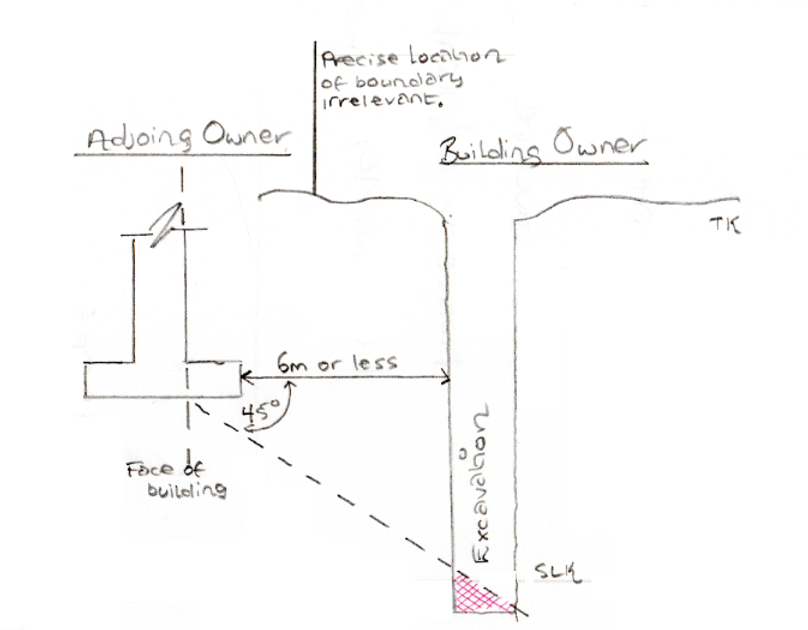 Precise location
of boundary
irrelevant.
Adjoing Owner
Building Owner
TK
6m or less
45°
Excavation
Face of
building
SLK